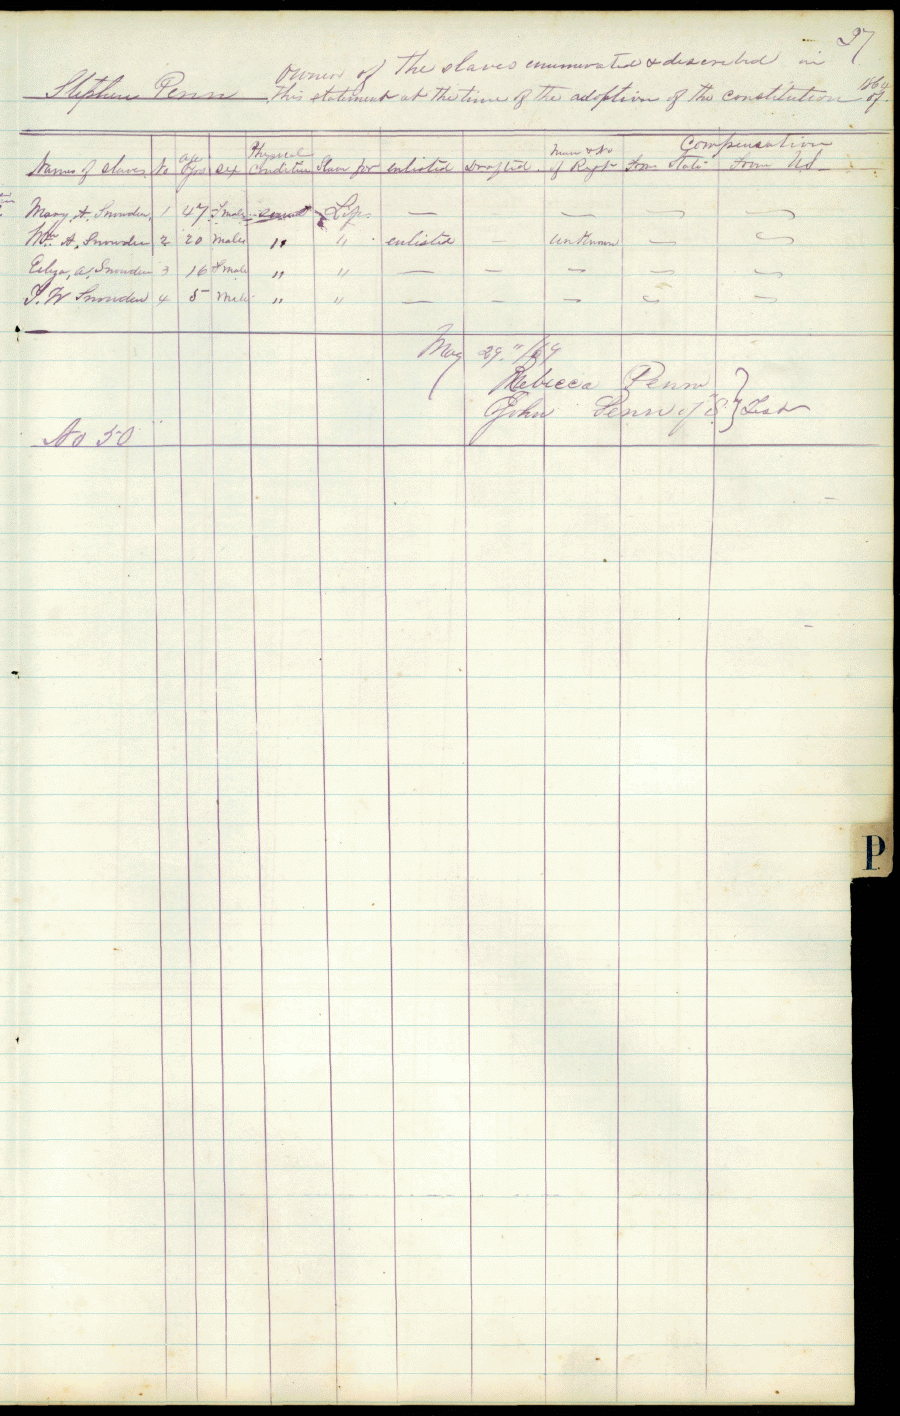 37
Stephen Penn owner of the slaves enumerated & described in
this statement at the time of the adoption of the constitution 1864 of.
Compensation
Names of slaves No age yrs sex Physical Condition Slave for enlisted Drafted. & No of Regt From State From US
Mary, A, Snowden, 1 47 Fmale Life — — — —
Wm. A, Snowden 2 20 Male " " enlisted — unknown — —
Eliza, A, Snowden 3 16 Fmale " " — — — — —
T. W Snowden 4 5 Male " " — — — — —
May 29."/69
Rebecca Penn
John Penn of S. } Test
No 50
P